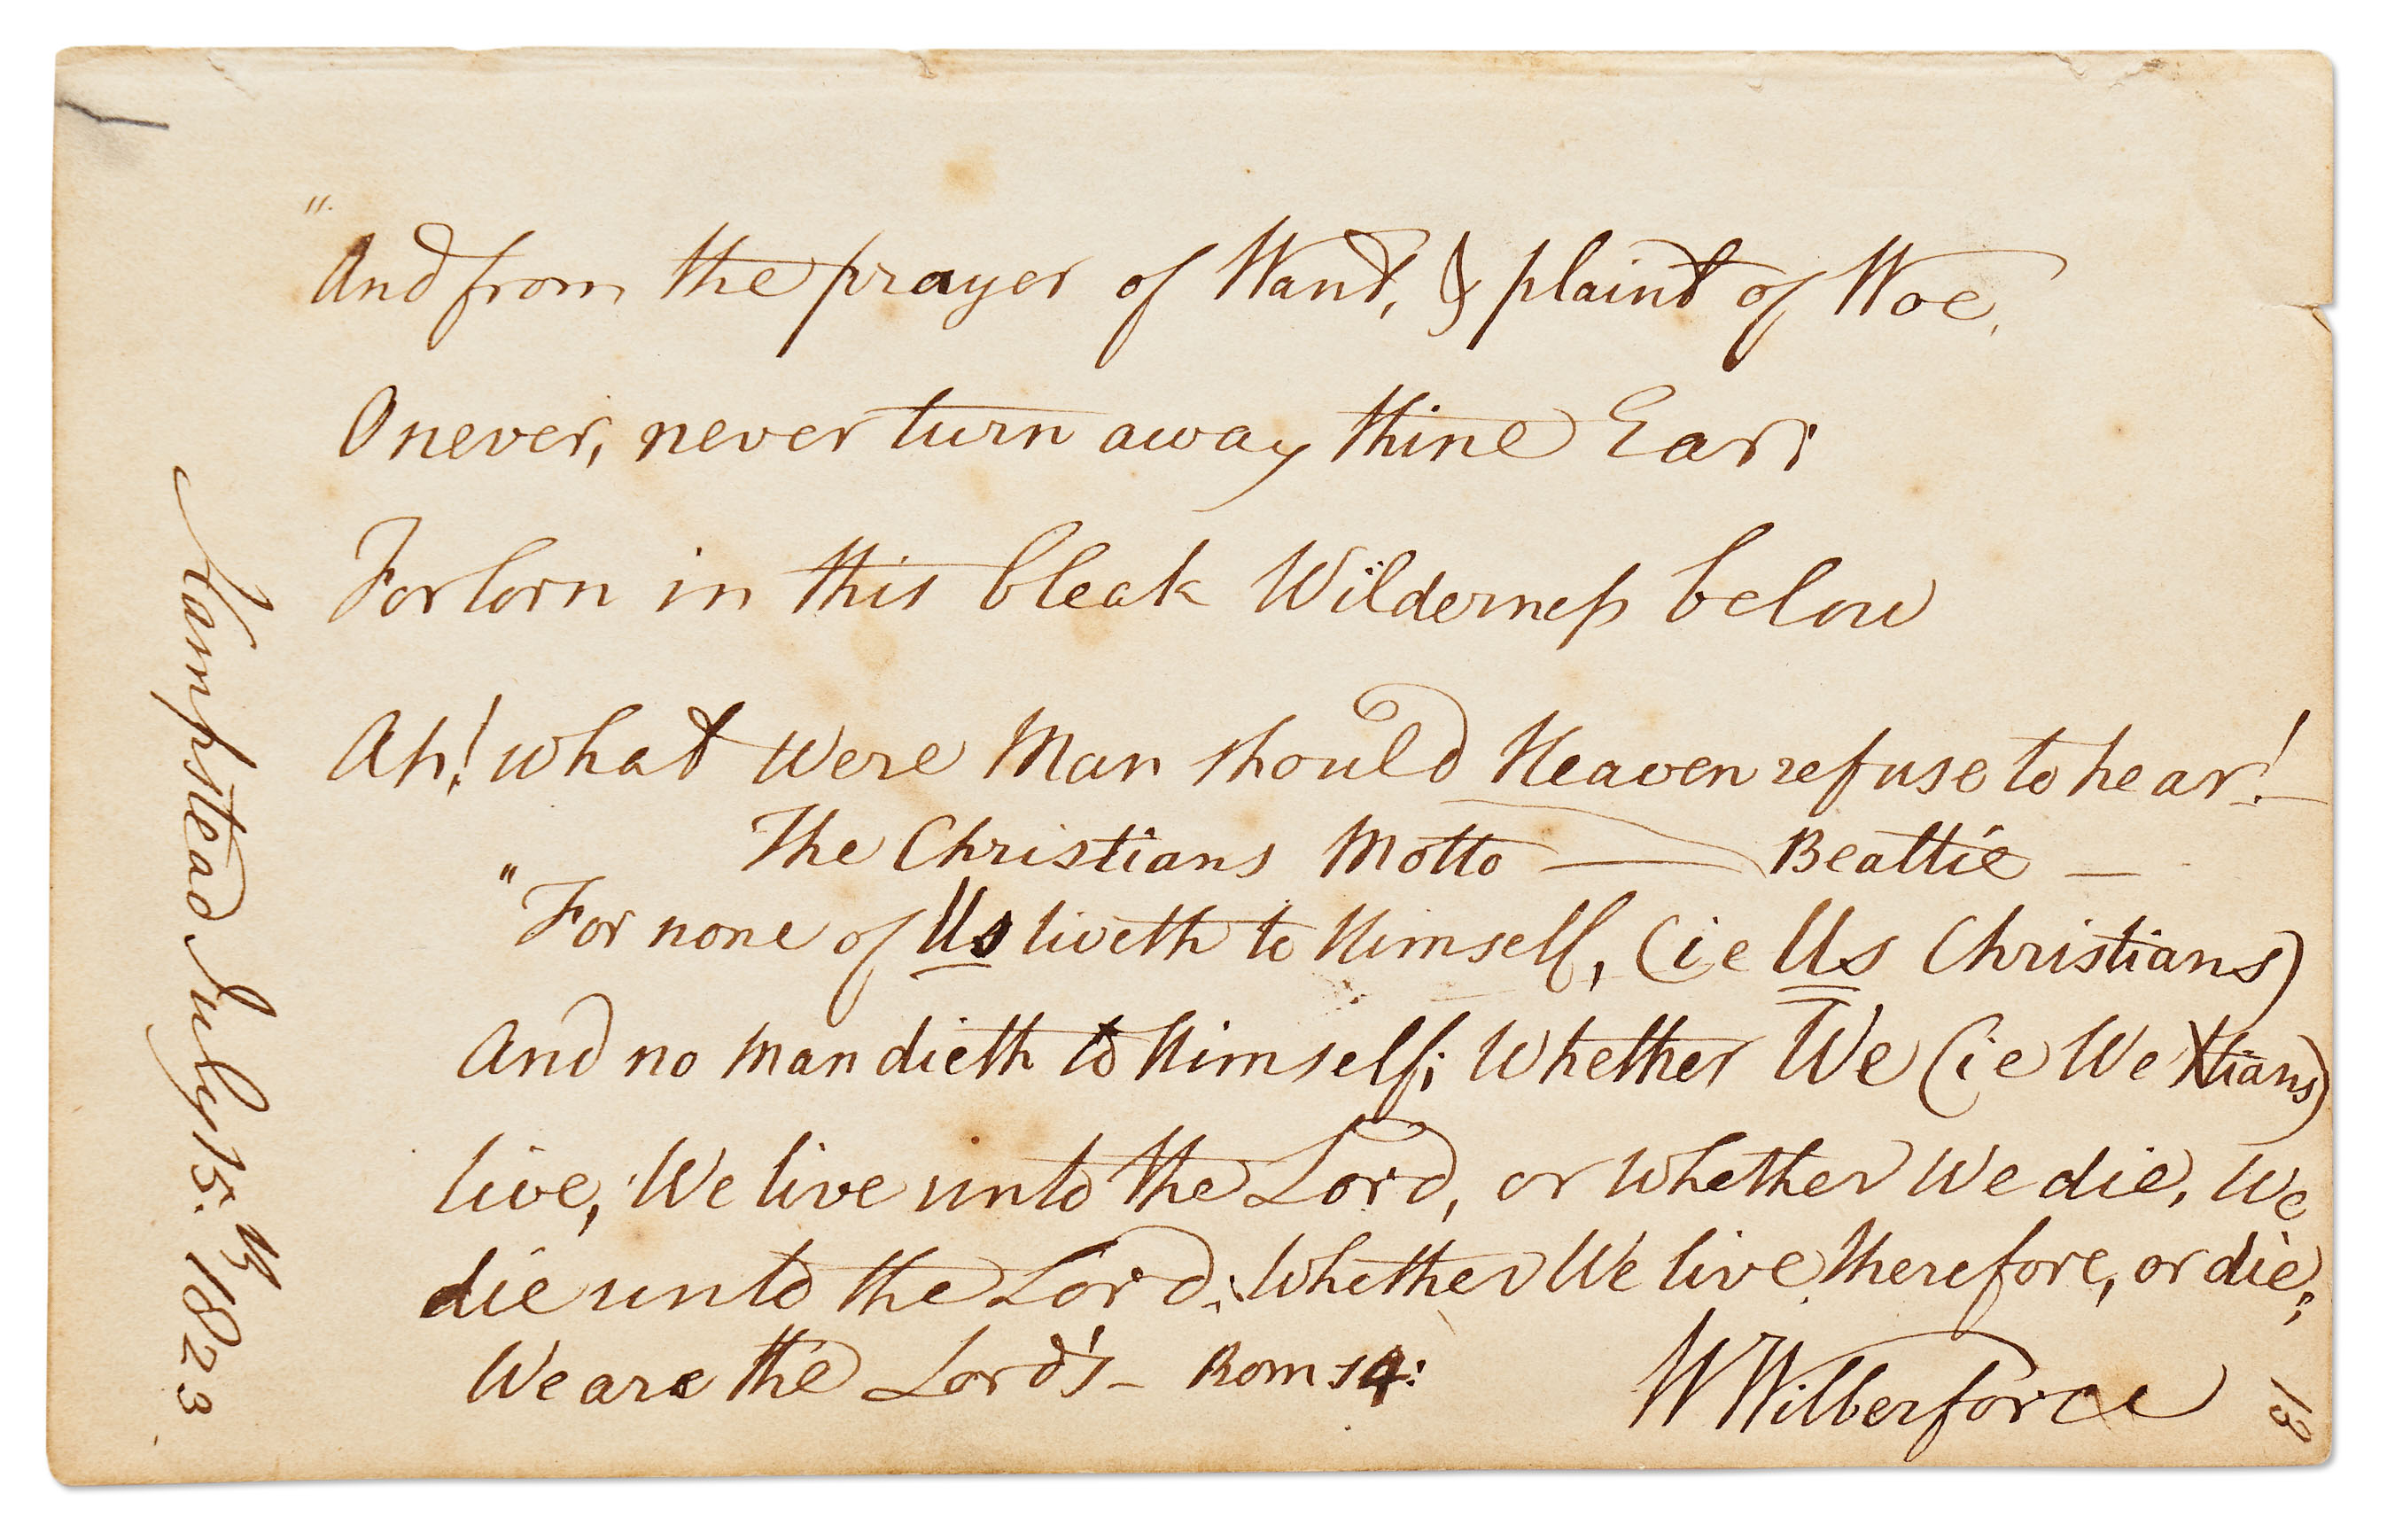 "And from the prayer of Want, & plaint of Woe,
O never, never turn away thine Ear;
Forlorn in this bleak Wilderness below
Ah! what were Man should Heaven refuse to hear!—
The Christians Motto — Beattie —
"For none of Us liveth to Himself, (ie Us Christians)
And no man dieth to Himself; Whether We (ie We Xtians)
live, We live unto the Lord, or whether We die, We
die unto the Lord; Whether We live therefore, or die,
We are the Lord's — Rom 14:
W Wilberforce
Hampstead July 15.th 1823